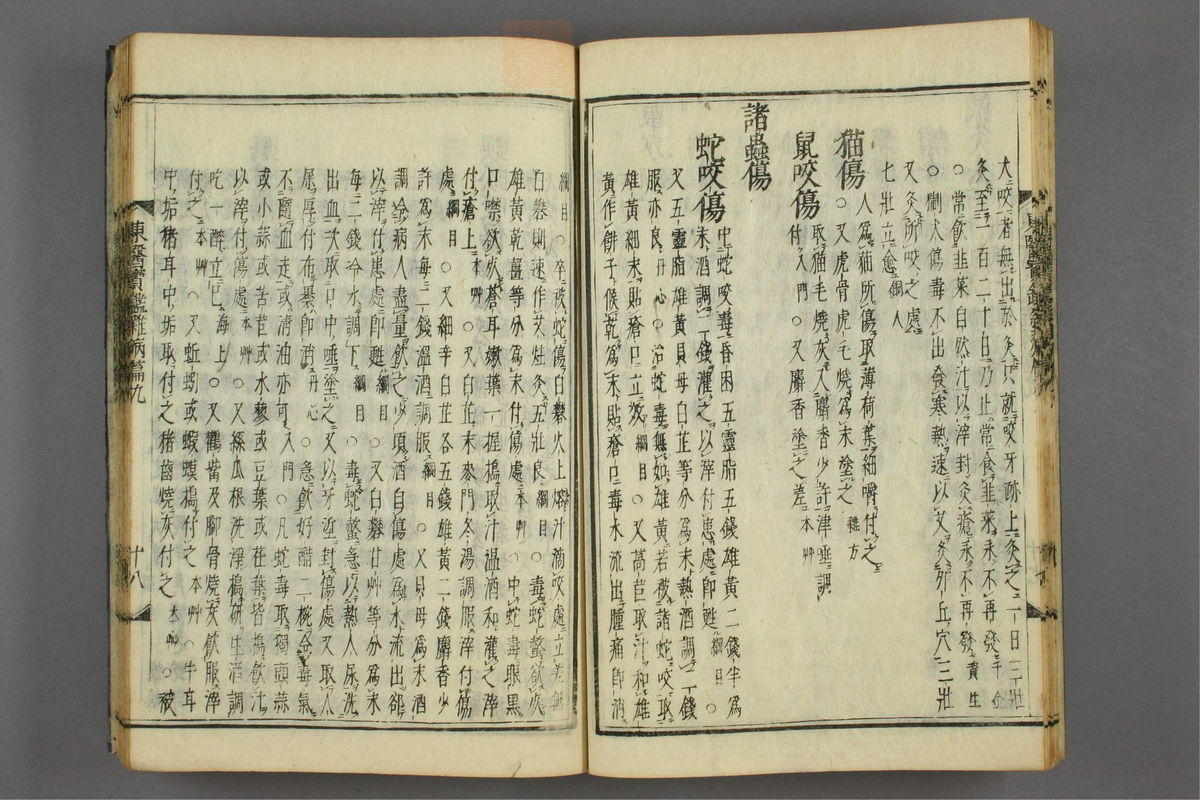 犬咬者無出於灸只就咬牙跡上灸之一日三壯
灸至一百二十日乃止常食韭菜永不再發千金
○常飲韭菜自然汁以滓封灸瘡永不再發資生
○猘犬傷毒不出發寒熱速以艾灸外丘穴三壯
又灸所咬之處
七壯立愈銅人
猫傷 人爲猫所傷取薄荷葉細嚼付之
○又虎骨虎毛燒爲末塗之雜方
鼠咬傷 取猫毛燒灰入麝香少許津唾調
付入門○又麝香塗之差本草
諸蟲傷
蛇咬傷 中蛇咬毒昏困五靈脂五錢雄黃二錢半爲
末酒調二錢灌之以滓付患處卽甦綱目○
又五靈脂雄黃貝母白芷等分爲末熱酒調二錢
服亦良丹心○治蛇毒無如雄黃若被諸蛇咬取
雄黃細末貼瘡口立效綱目○又萵苣取汁和雄
黃作餠子候乾爲末貼瘡口毒水流出腫痛卽消
綱目○卒被蛇傷白礬火上熔汁滴咬處立差無
白礬則速作艾炷灸五壯良綱目○毒蛇螫欲死
雄黃乾薑等分爲末付傷處本草○中蛇毒眼黑
口噤欲死蒼耳嫩葉一握搗取汁溫酒和灌之滓
付瘡上本草○又白芷末麥門冬湯調服滓付傷
處綱目○又細辛白芷各五錢雄黃二錢麝香少
許爲末每二錢溫酒調服綱目○又貝母爲末酒
調令病人盡量飮之少頃酒自傷處爲水流出却
以滓付患處卽甦綱目○又白礬甘草等分爲末
每二錢冷水調下綱目○毒蛇螫急以熱人尿洗
出血次取口中唾塗之又以牙垽封傷處又取人
屎厚付布裹卽消丹心○急飮好醋二椀令毒氣
不隨血走或淸油亦可入門○凡蛇毒取獨頭蒜
或小蒜或苦苣或水蓼或豆葉或荏葉皆搗飮汁
以滓付傷處本草○又絲瓜根洗淨搗硏生酒調
吃一醉立已海上○又鸛觜及脚骨燒灰飮服滓
付之本草○又蚯蚓或蝦蟆搗付之本草○牛耳
中垢猪耳中垢取付之猪齒燒灰付之本草○被
東醫寶鑑雜病篇九
十八